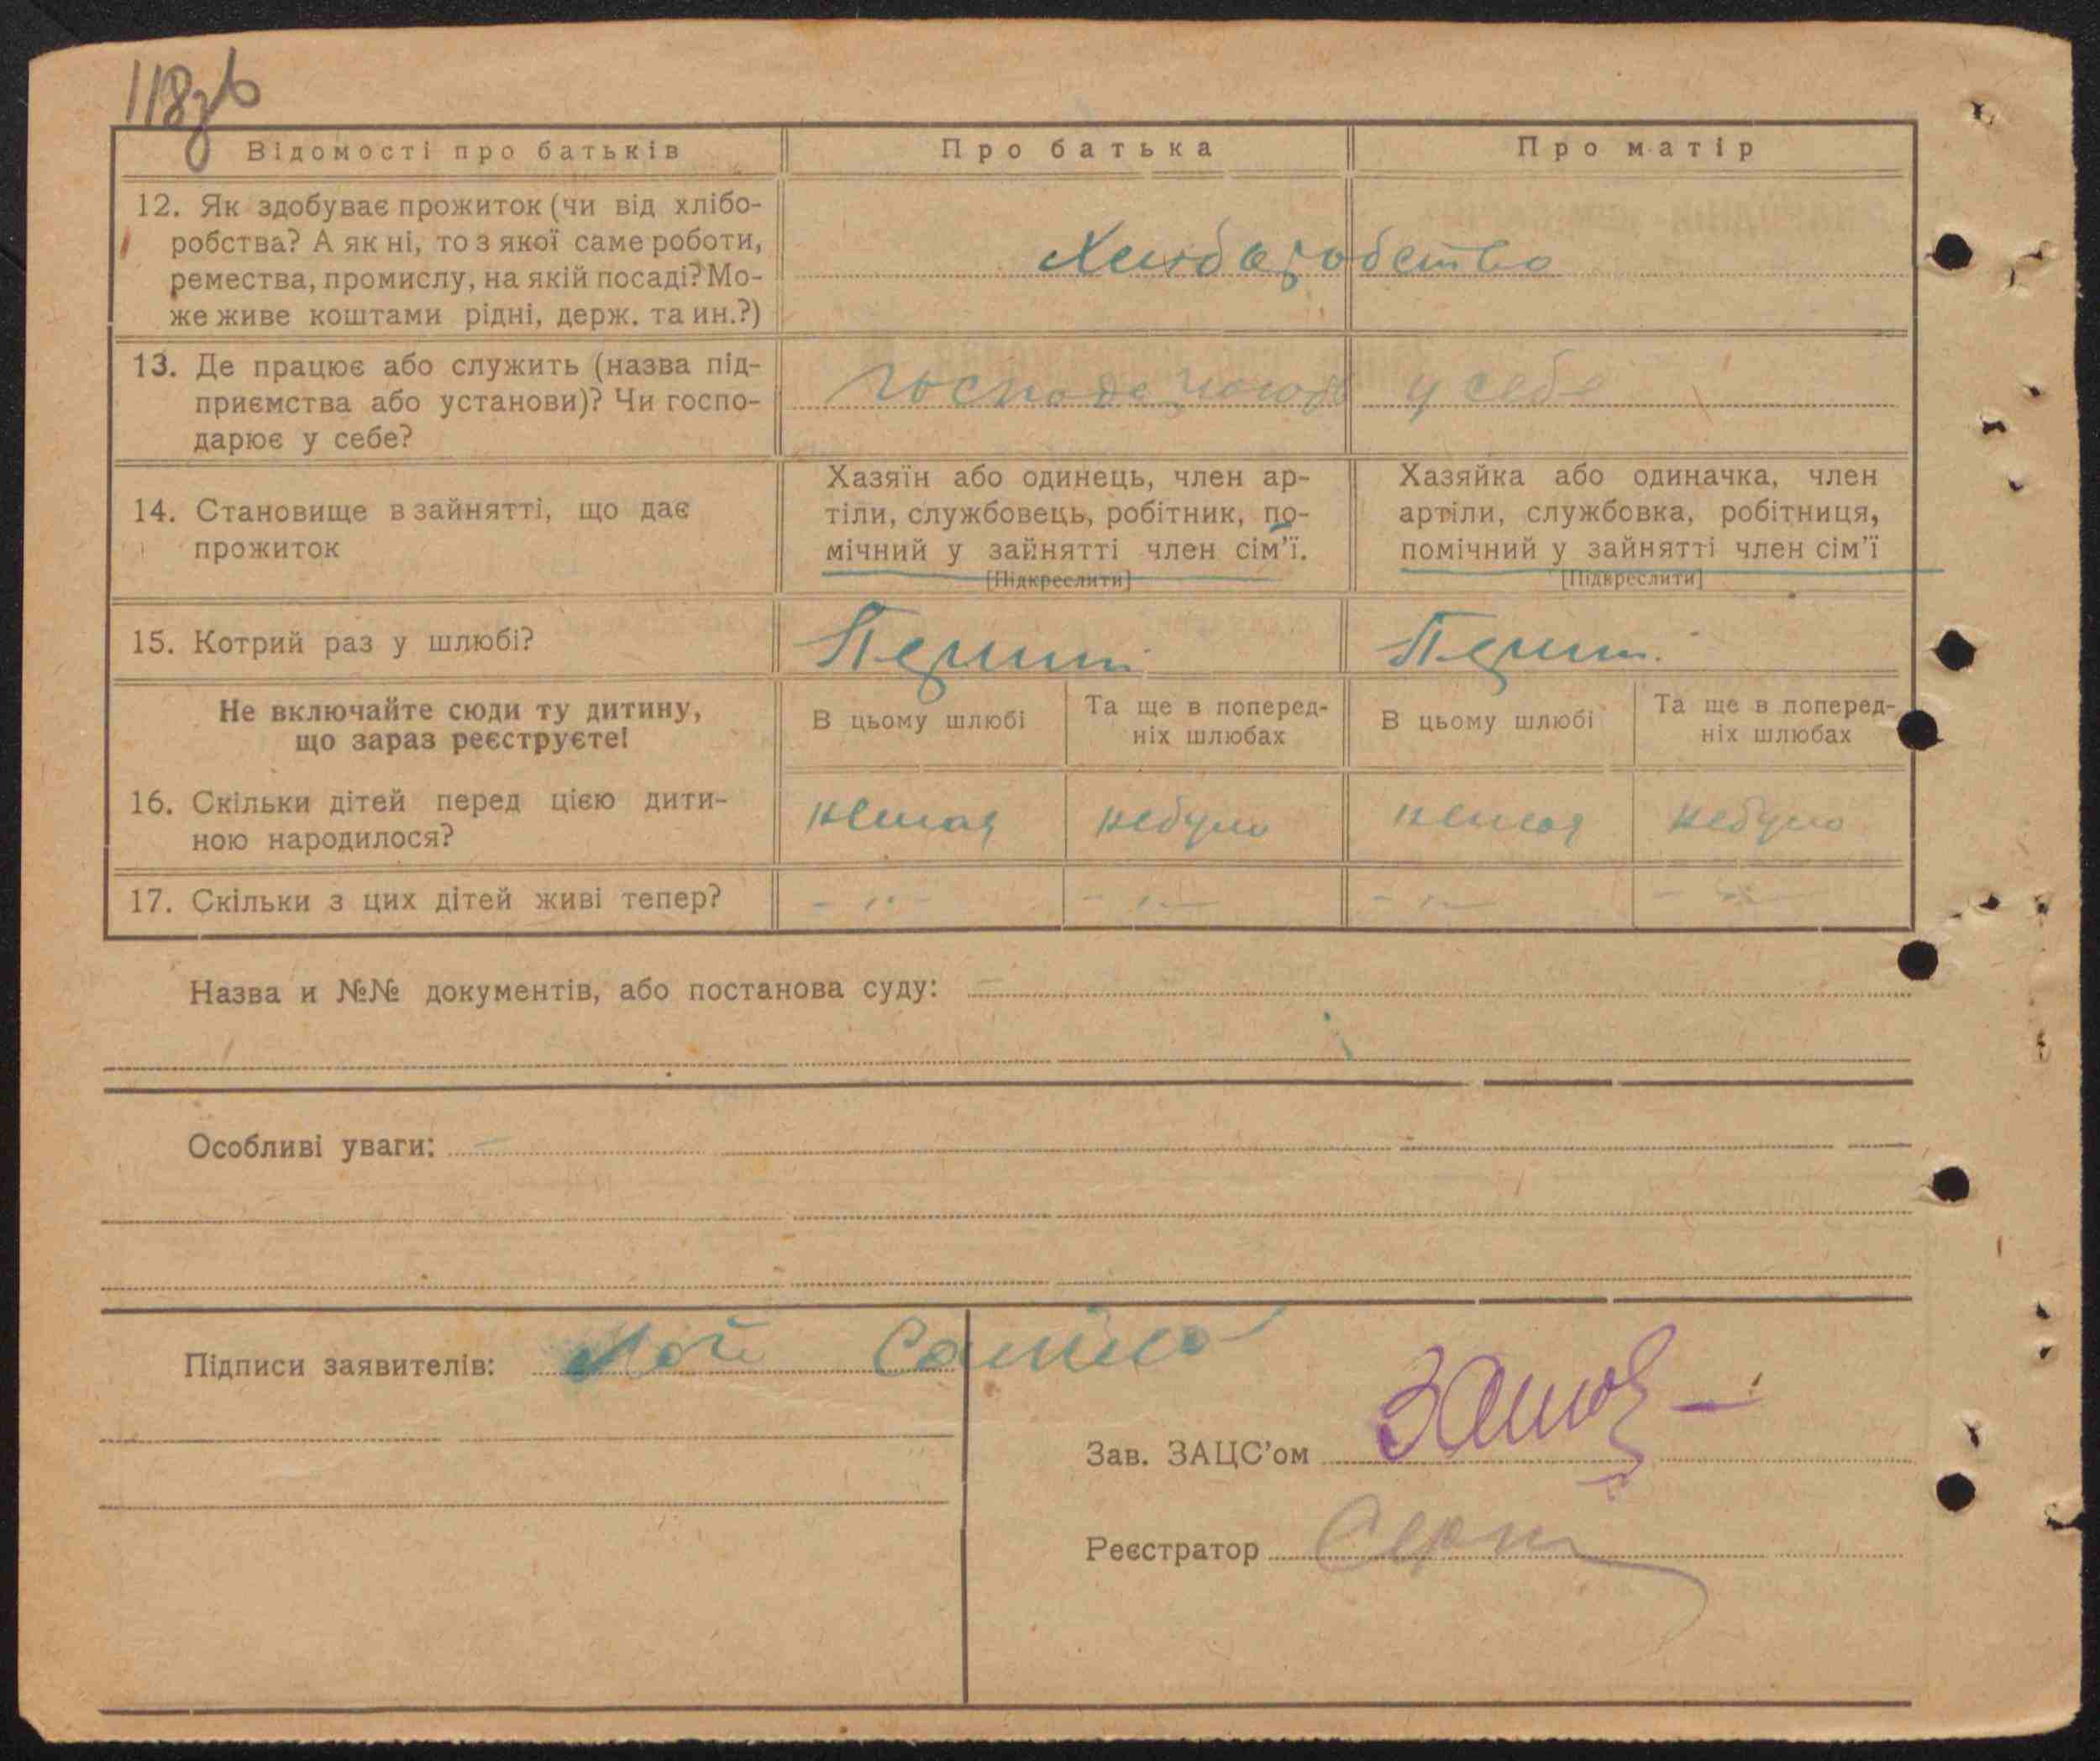 118зв
Відомості про батьків
Про батька
Про матір
12. Як здобуває прожиток (чи від хлібо-
робства? А як ні, то з якої саме роботи,
ремества, промислу, на якій посаді? Мо-
же живе коштами рідні, держ. та ин.?)
Хлиборобство
13. Де працює або служить (назва під-
приємства або установи)? Чи госпо-
дарює у себе?
господарюють у себе
14. Становище в зайнятті, що дає
прожиток
Хазяїн або одинець, член ар-
тіли, службовець, робітник, по-
мічний у зайнятті член сім'ї.
[Підкреслити]
Хазяйка або одиначка, член
артіли, службовка, робітниця,
помічний у зайнятті член сім'ї
[Підкреслити]
15. Котрий раз у шлюбі?
Перший
Перший
Не включайте сюди ту дитину,
що зараз реєструєте!
В цьому шлюбі
Та ще в поперед-
ніх шлюбах
В цьому шлюбі
Та ще в поперед-
ніх шлюбах
16. Скільки дітей перед цією дити-
ною народилося?
немає
небуло
немає
небуло
17. Скільки з цих дітей живі тепер?
- " -
- " -
- " -
- " -
Назва и №№ документів, або постанова суду: –
Особливі уваги: –
Підписи заявителів:
Зав. ЗАЦС'ом
Реєстратор